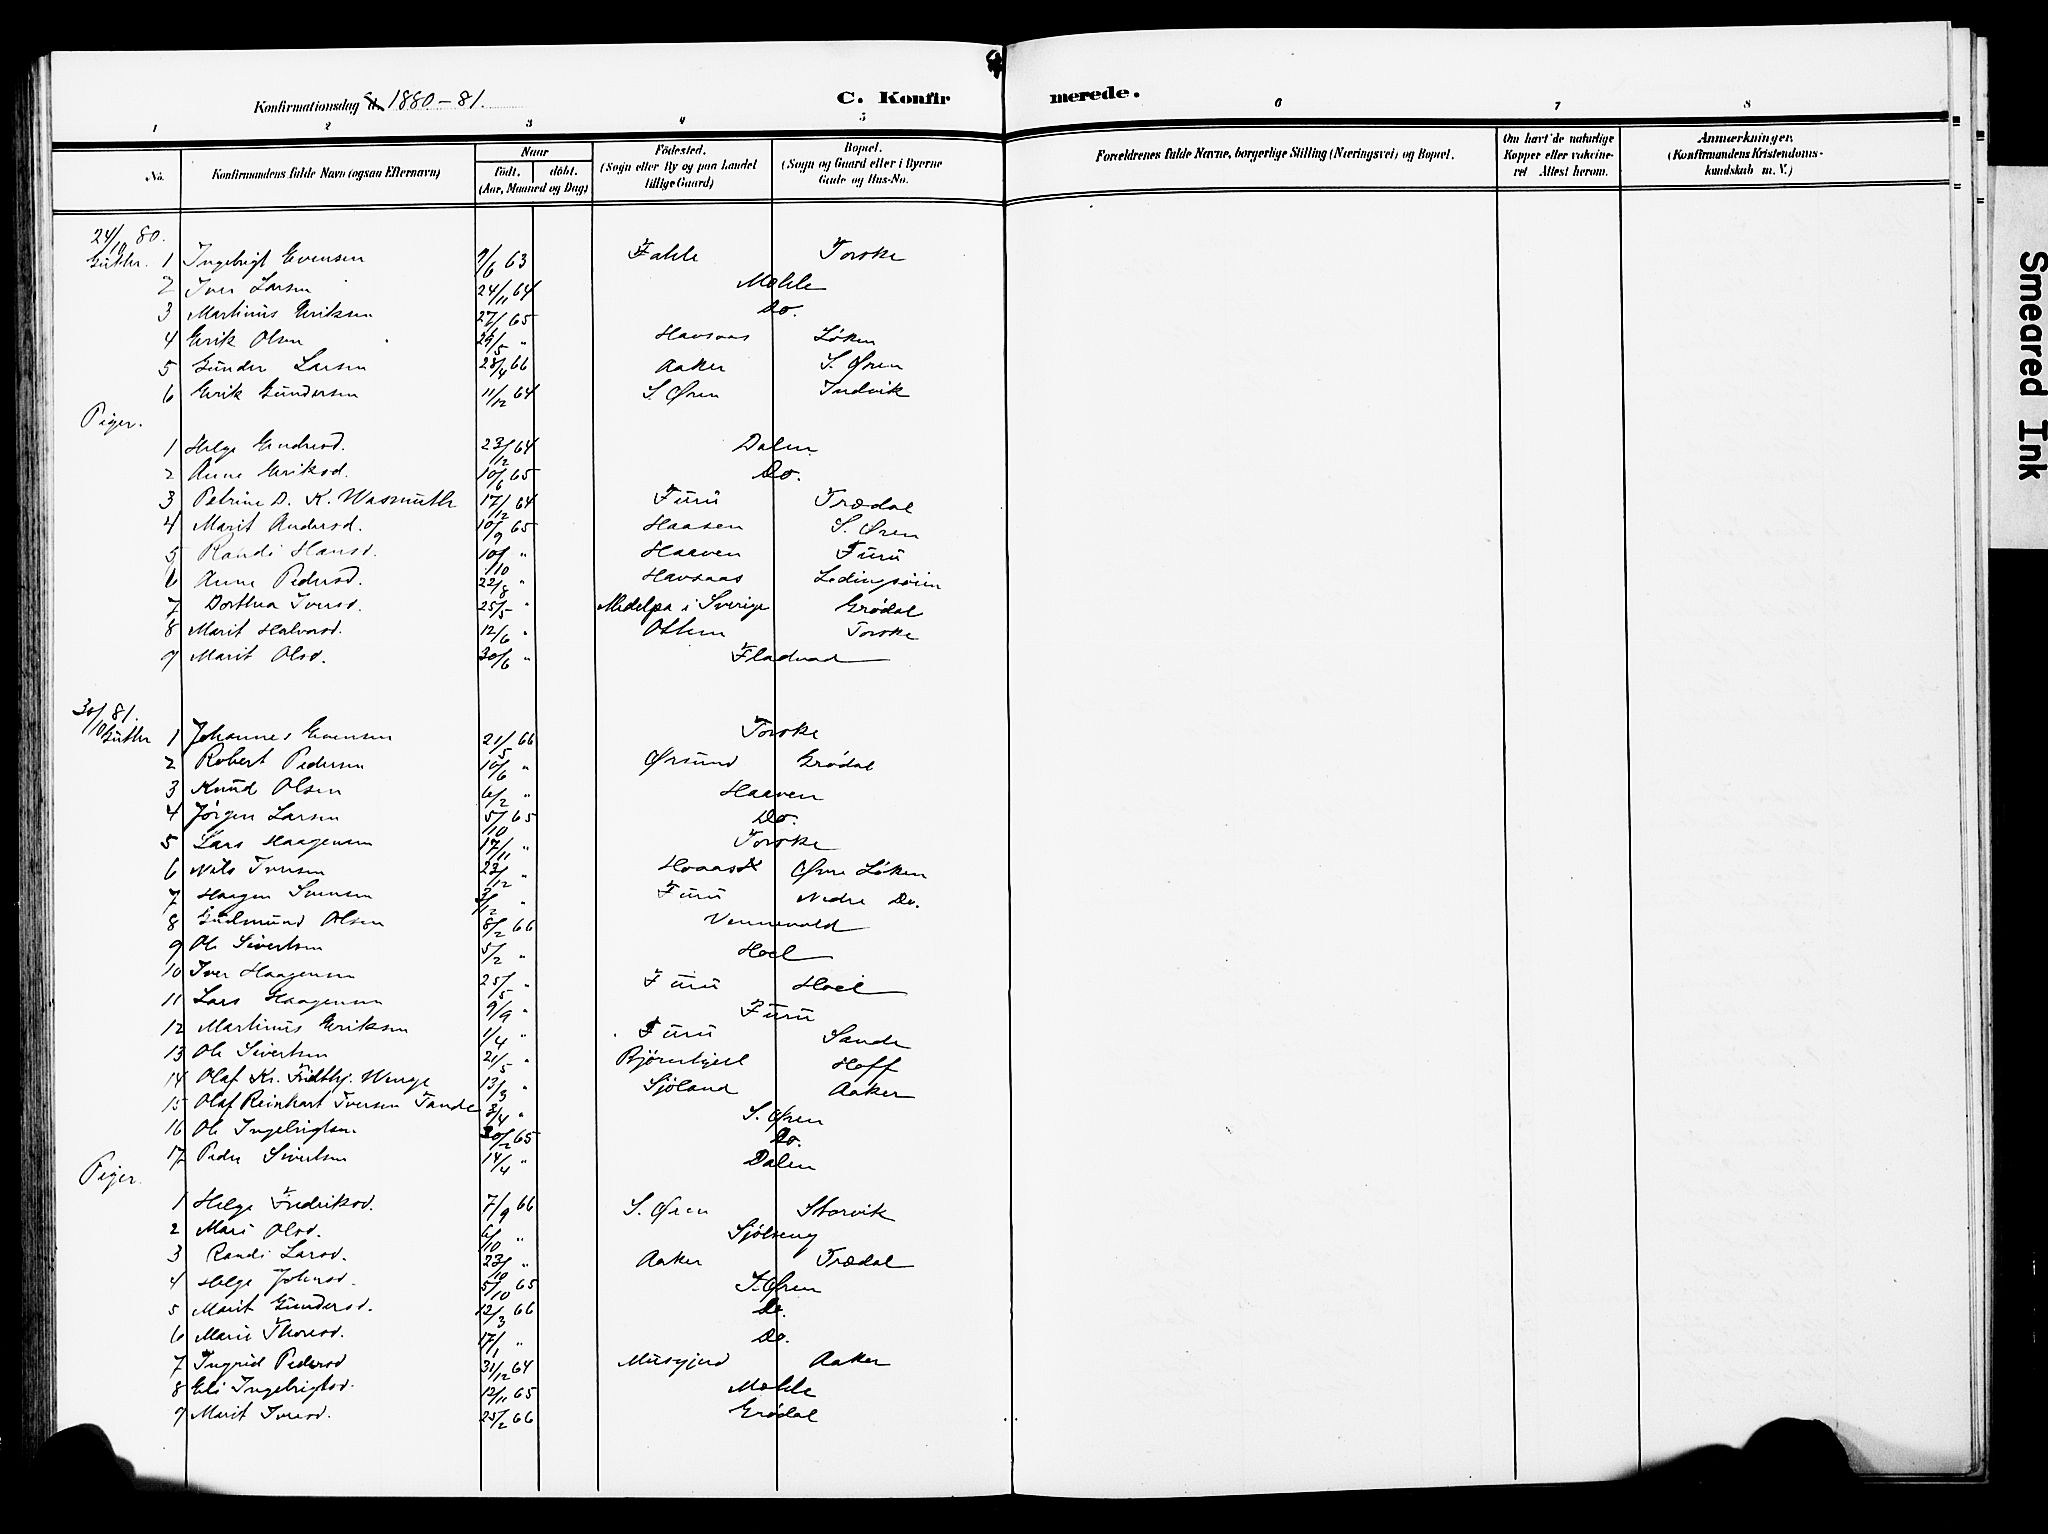 Konfirmationsdag 1880-81. C. Konfirmerede.
1 2 3 4 5 6 7 8
No. Konfirmandens fulde Navn (ogsaa Efternavn) Naar født. døbt. (Aar, Maaned og Dag) Fødested. (Sogn eller By og paa Landet tillige Gaard) Bopæl. (Sogn og Gaard eller i Byerne Gade og Hus-No. Forældrenes fulde Navne, borgerlige Stilling (Næringsvei) og Bopæl. Om havt de naturlige Kopper eller vakcineret Attest herom. Anmærkninger. (Konfirmandens Kristendomskundskab m. V.)
24/10 80.
Gutter. 1 Ingebrigt Evensen 9/6 63 Fahle Torske
2 Iver Larsen 24/11 64 Mæhle
3 Martinus Eriksen 27/ 65 Do.
4 Erik Olsen 29/5 " Havsaas Løken
5 Gunder Larsen 28/4 66 Aaker S. Øren
6 Erik Gundersen 11/12 64 S. Øren Indvik
Piger.
1 Helge Endresd. 23/12 64 Dalen
2 Anne Eriksd. 10/6 65 Do.
3 Petrine D. K. Wasmuth 17/12 64 Furu Trædal
4 Marit Andersd. 10/9 65 Haasen S. Øren
5 Randi Hansd. 10/10 " Haaven Furu
6 Anne Pedersd. 22/8 " Havsaas Ledingsøien
7 Dorthea Iversd. 25/5 " Medelpa i Sverige Grødal
8 Marit Halvorsd. 12/6 " Ottem Torske
9 Marit Olsd. 30/6 " Fladvad
30/10 81.
Gutter 1 Johannes Evensen 21/5 66 Torske
2 Robert Pedersen 10/6 " Ørsund Grødal
3 Knud Olsen 6/2 " Haaven
4 Jørgen Larsen 5/10 65 Do.
5 Lars Haagensen 17/11 " Torske
6 Nils Iversen 23/12 " Hovaas Øvre Løken
7 Haagen Svensen 3/12 " Furu Nedre Do.
8 Gudmund Olsen 8/2 66 Vennevold
9 Ole Sivertsen 5/2 " Hoel
10 Iver Haagensen 25/5 " Furu Hoel
11 Lars Haagensen 9/9 " Furu
12 Martinus Eriksen 1/4 " Furu Sande
13 Ole Sivertsen 21/5 " Bjørnhjell Hoff
14 Olaf Kr. Fridthj. Wenge 13/3 " Sjøland Aaker
15 Olaf Reinhart Iversen Tande 3/4 " S. Øren
16 Ole Ingebrigtsen 20/2 65 Do.
17 Peder Sivertsen 14/4 " Dalen
Piger.
1 Helge Fredriksd. 7/9 66 S. Øren Storvik
2 Mari Olsd. 6/10 " Sjølseng
3 Randi Larsd. 23/10 " Aaker Trædal
4 Helge Johnsd. 5/10 65 S. Øren
5 Marit Gundersd. 12/3 66 Do.
6 Marie Thoresd. 17/1 " Do.
7 Ingrid Pedersd 31/12 64 Musgjerd Aaker
8 Eli Ingebrigtsd. 12/11 65 Mæhle
9 Marit Iversd. 25/2 66 Grødal
Smeared Ink